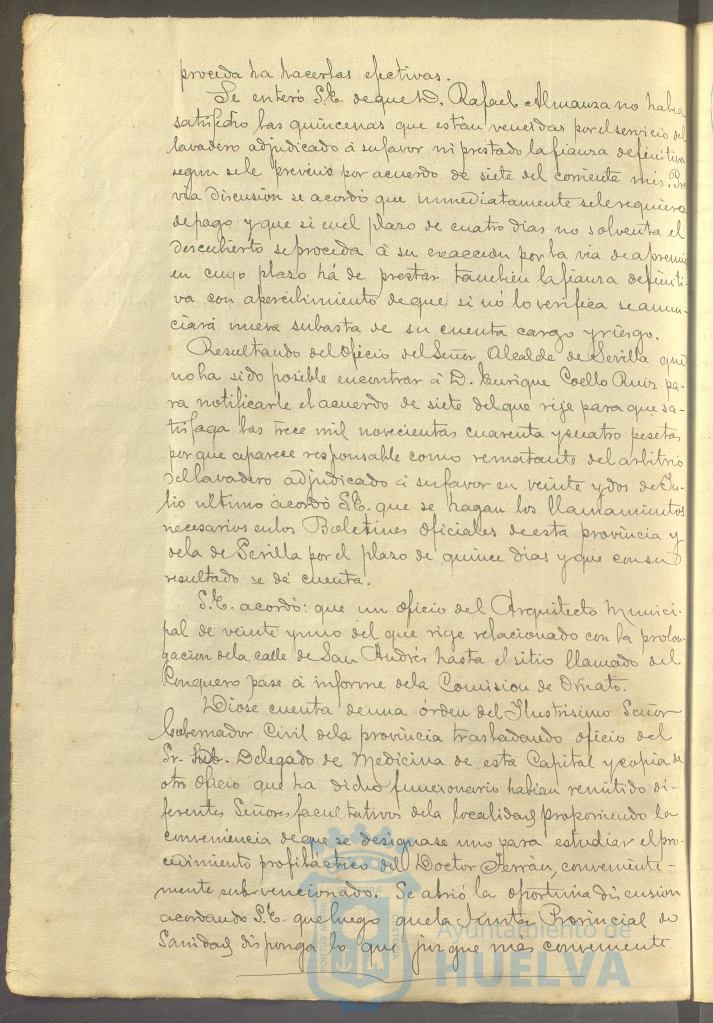 proceda ha hacerlas efectivas.
Se enteró S.E. de que D. Rafael Almanza no habia
satisfecho las quincenas que estan vencidas por el servicio del
lavadero adjudicado á su favor ni prestado la fianza definitiva
segun se le previno por acuerdo de siete del corriente mes. Pre-
via discusion se acordó que inmediatamente se le requiera
de pago y que si en el plazo de cuatro dias no solventa el
descubierto se proceda á su exaccion por la via de apremio
en cuyo plazo há de prestar tambien la fianza definiti-
va con apercibimiento de que si nó lo verifica se anun-
ciará nueva subasta de su cuenta cargo y riesgo.
Resultando del oficio del Señor Alcalde de Sevilla que
no ha sido posible encontrar á D. Enrique Coello Ruiz pa-
ra notificarle el acuerdo de siete del que rige para que sa-
tisfaga las trece mil novecientas cuarenta y cuatro pesetas
por que aparece responsable como rematante del arbitrio
del lavadero adjudicado á su favor en veinte y dos de Ju-
lio ultimo acordó S.E. que se hagan los llamamientos
necesarios en los Boletines oficiales de esta provincia y
de la de Sevilla por el plazo de quince dias y que con su
resultado se dé cuenta.
S.E. acordó: que un oficio del Arquitecto Munici-
pal de veinte y uno del que rige relacionado con la prolon-
gacion de la calle de San Andrés hasta el sitio llamado del
Conquero pase á informe de la Comision de Ornato.
Diose cuenta de una órden del Ilustrisimo Señor
Gobernador Civil de la provincia trasladando oficio del
Sr. Sub. Delegado de Medicina de esta Capital y copia de
otro oficio que ha dicho funcionario habian remitido di-
ferentes Señores facultativos de la localidad proponiendo la
conveniencia de que se designase uno para estudiar el pro-
cedimiento profiláctico del Doctor Ferrán, conveniente-
mente subvencionado. Se abrió la oportuna discusion
acordando S.E. que luego que la Junta Provincial de
Sanidad disponga lo que juzgue más conveniente
Ayuntamiento de
HUELVA